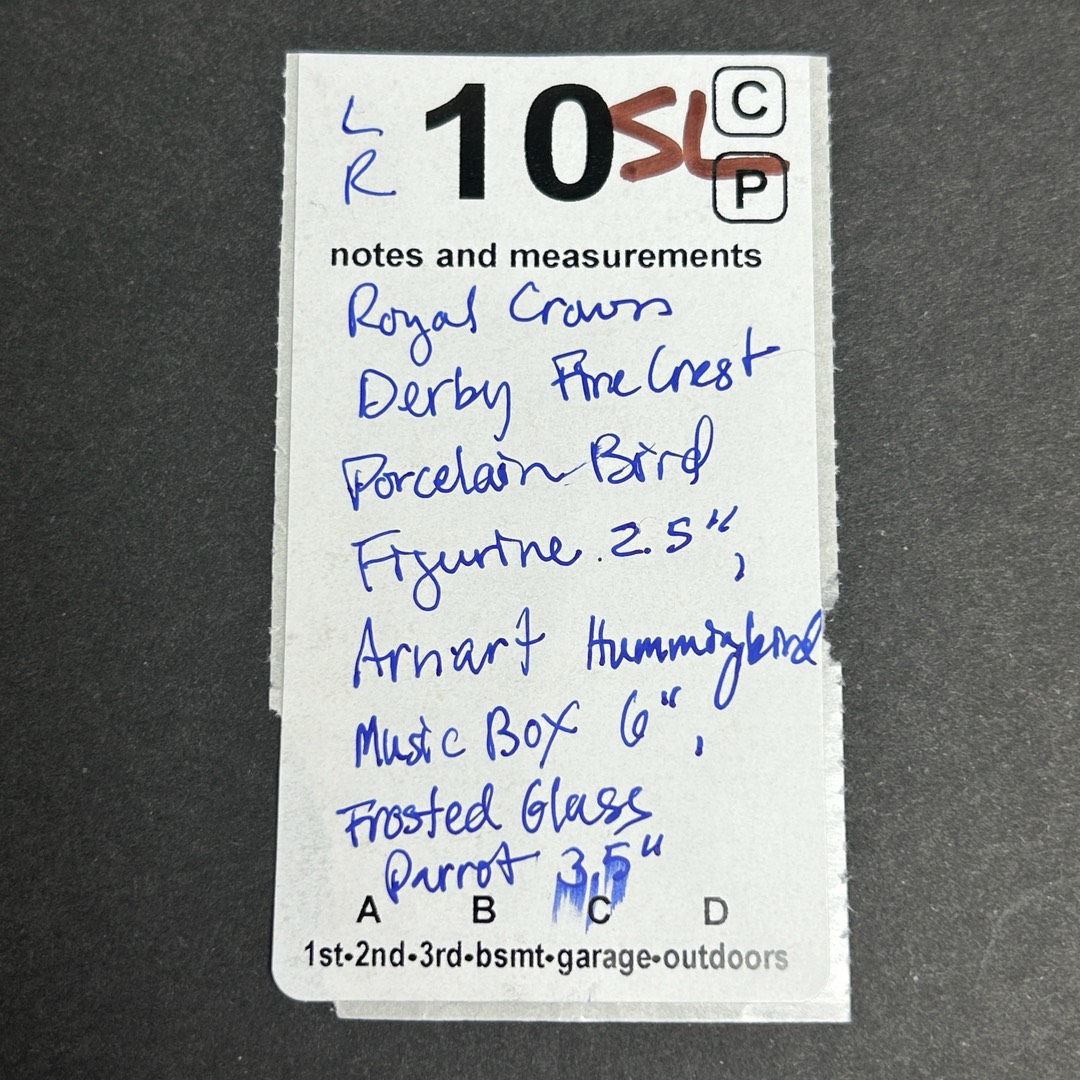 L
R
10 SL C
P
notes and measurements
Royal Crown
Derby Fire Crest
Porcelain Bird
Figurine 2.5",
Arnart Hummingbird
Music Box 6",
Frosted Glass
Parrot 3.5"
A B C D
1st•2nd•3rd•bsmt•garage•outdoors